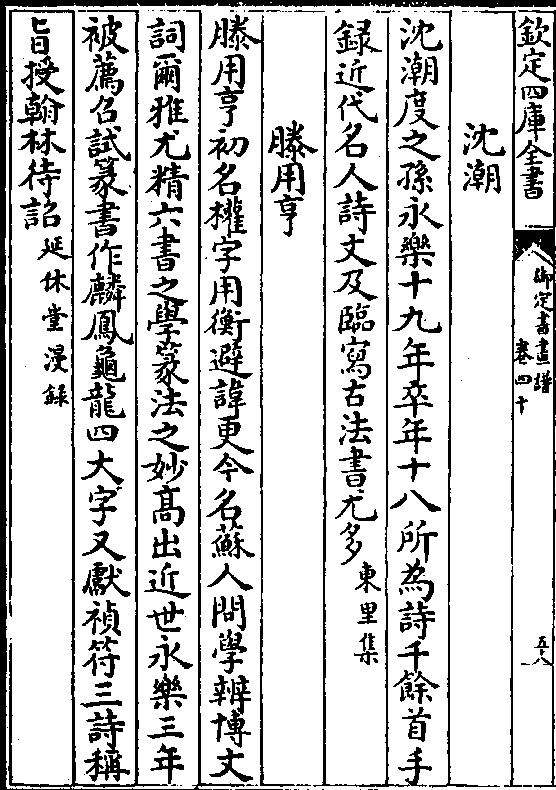 欽定四庫全書
御定書畫譜
卷四十
五八
沈潮
沈潮度之孫永樂十九年卒年十八所為詩千餘首手
録近代名人詩文及臨寫古法書尤多東里集
滕用亨
滕用亨初名權字用衡避諱更今名蘇人問學辨博文
詞爾雅尤精六書之學篆法之妙髙出近世永樂三年
被薦召試篆書作麟鳳龜龍四大字又獻禎符三詩稱
旨授翰林待詔延休堂漫録